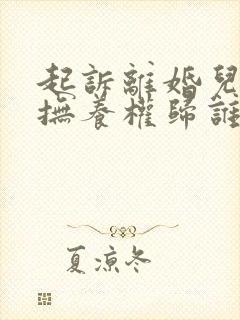 起訴離婚兒
撫養權歸誰
夏涼冬